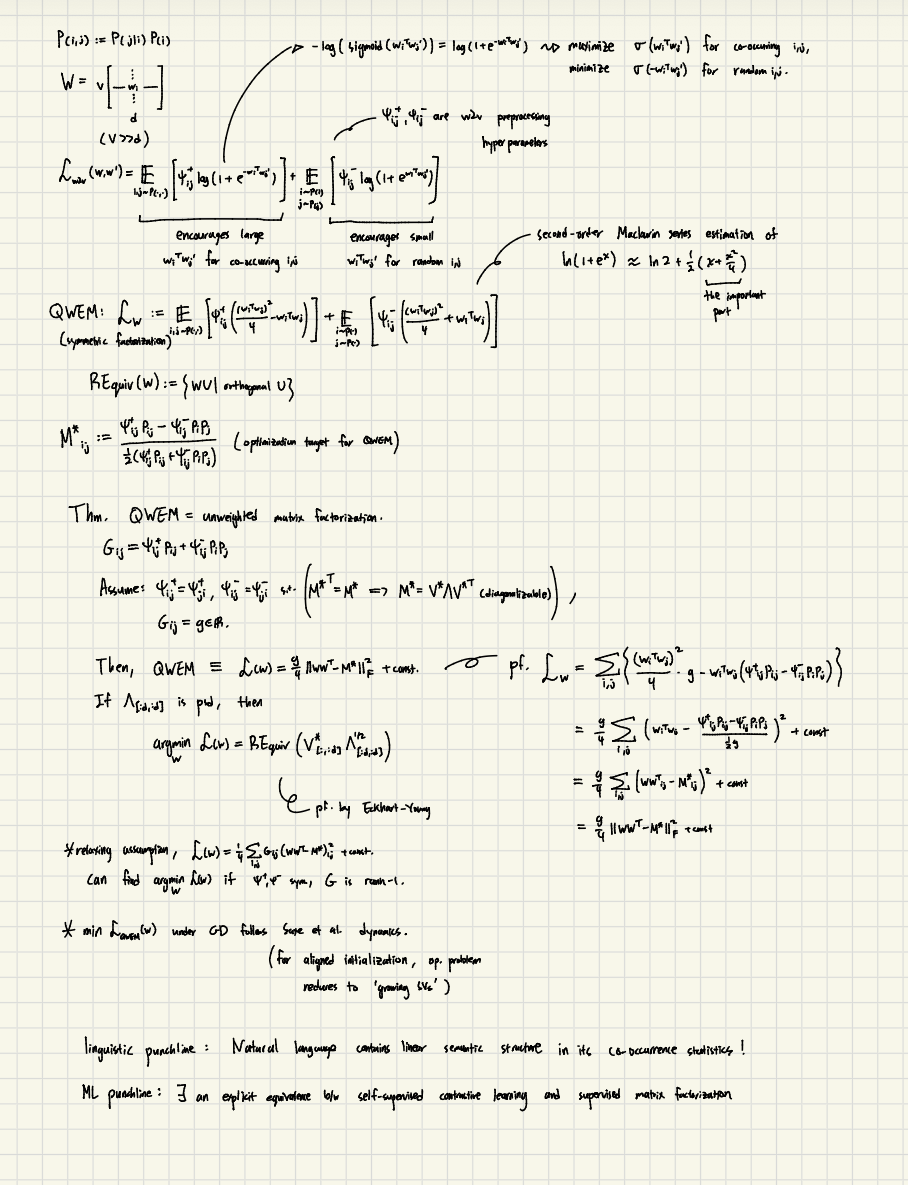 P(i,j) := P(j|i) P(i)
-log(sigmoid(wᵢᵀwⱼ')) = log(1+e^{-wᵢᵀwⱼ'}) ⇝ maximize σ(wᵢᵀwⱼ') for co-occuring i,j,
minimize σ(-wᵢᵀwⱼ') for random i,j.
W = V[— wᵢ —]
d
(V>>d)
ψᵢⱼ⁺, ψᵢⱼ⁻ are w2v preprocessing
hyperparameters
L_{w2v}(W,W') = 𝔼_{i,j~P(·,·)} [ψᵢⱼ⁺ log(1+e^{-wᵢᵀwⱼ'})] + 𝔼_{i~P(i) j~P(j)} [ψᵢⱼ⁻ log(1+e^{wᵢᵀwⱼ'})]
encourages large
wᵢᵀwⱼ' for co-occuring i,j
encourages small
wᵢᵀwⱼ' for random i,j
second-order Maclaurin series estimation of
ln(1+eˣ) ≈ ln 2 + ½(x + x²/4)
the important
part
QWEM: L_W := 𝔼_{i,j~P(·,·)} [ψᵢⱼ⁺((wᵢᵀwⱼ)²/4 - wᵢᵀwⱼ)] + 𝔼_{i~P(·) j~P(·)} [ψᵢⱼ⁻((wᵢᵀwⱼ)²/4 + wᵢᵀwⱼ)]
(symmetric factorization)
REquiv(W) := {WU | orthogonal U}
M*ᵢⱼ := (ψᵢⱼ⁺Pᵢⱼ - ψᵢⱼ⁻PᵢPⱼ) / (½(ψᵢⱼ⁺Pᵢⱼ + ψᵢⱼ⁻PᵢPⱼ)) (optimization target for QWEM)
Thm. QWEM = unweighted matrix factorization.
Gᵢⱼ = ψᵢⱼ⁺Pᵢⱼ + ψᵢⱼ⁻PᵢPⱼ
Assume: ψᵢⱼ⁺ = ψⱼᵢ⁺, ψᵢⱼ⁻ = ψⱼᵢ⁻ s.t. (M*ᵀ = M* => M* = V*ΛV*ᵀ (diagonalizable)),
Gᵢⱼ = g∈ℝ.
Then, QWEM ≡ L(W) = g/4 ||WWᵀ - M*||²_F + const.
If Λ_{[:d,:d]} is psd, then
argmin_W L(W) = REquiv(V*_{[:,:d]} Λ^{1/2}_{[:d,:d]})
pf. by Eckhart-Young
pf. L_W = Σ_{i,j} {(wᵢᵀwⱼ)²/4 · g - wᵢᵀwⱼ(ψᵢⱼ⁺Pᵢⱼ - ψᵢⱼ⁻PᵢPⱼ)}
= g/4 Σ_{i,j} (wᵢᵀwⱼ - (ψᵢⱼ⁺Pᵢⱼ - ψᵢⱼ⁻PᵢPⱼ)/(½g))² + const
= g/4 Σ_{i,j} (WWᵀᵢⱼ - M*ᵢⱼ)² + const
= g/4 ||WWᵀ - M*||²_F + const
*relaxing assumption, L(W) = ¼ Σ_{i,j} Gᵢⱼ(WWᵀ - M*)²ᵢⱼ + const.
can find argmin_W L(W) if ψ⁺,ψ⁻ sym, G is rank-1.
* min L_{QWEM}(W) under GD follows Saxe et al. dynamics.
(for aligned initialization, op. problem
reduces to 'growing SVs')
linguistic punchline: Natural language contains linear semantic structure in its co-occurrence statistics!
ML punchline: ∃ an explicit equivalence b/w self-supervised contrastive learning and supervised matrix factorization